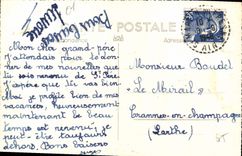 POSTALE
Adresse
Mon cher grand-père
j'attendais pour te donner
de mes nouvelles que tu
sois revenu de St
J'espère que tu vas bien
je profite bien de mes
vacances, heureusement
maintenant le beau
temps est revenu, je
peut être toujours
dehors. Bons baisers
Monsieur Baudel
Le Mirail
Crannes-en-champagne
Sarthe